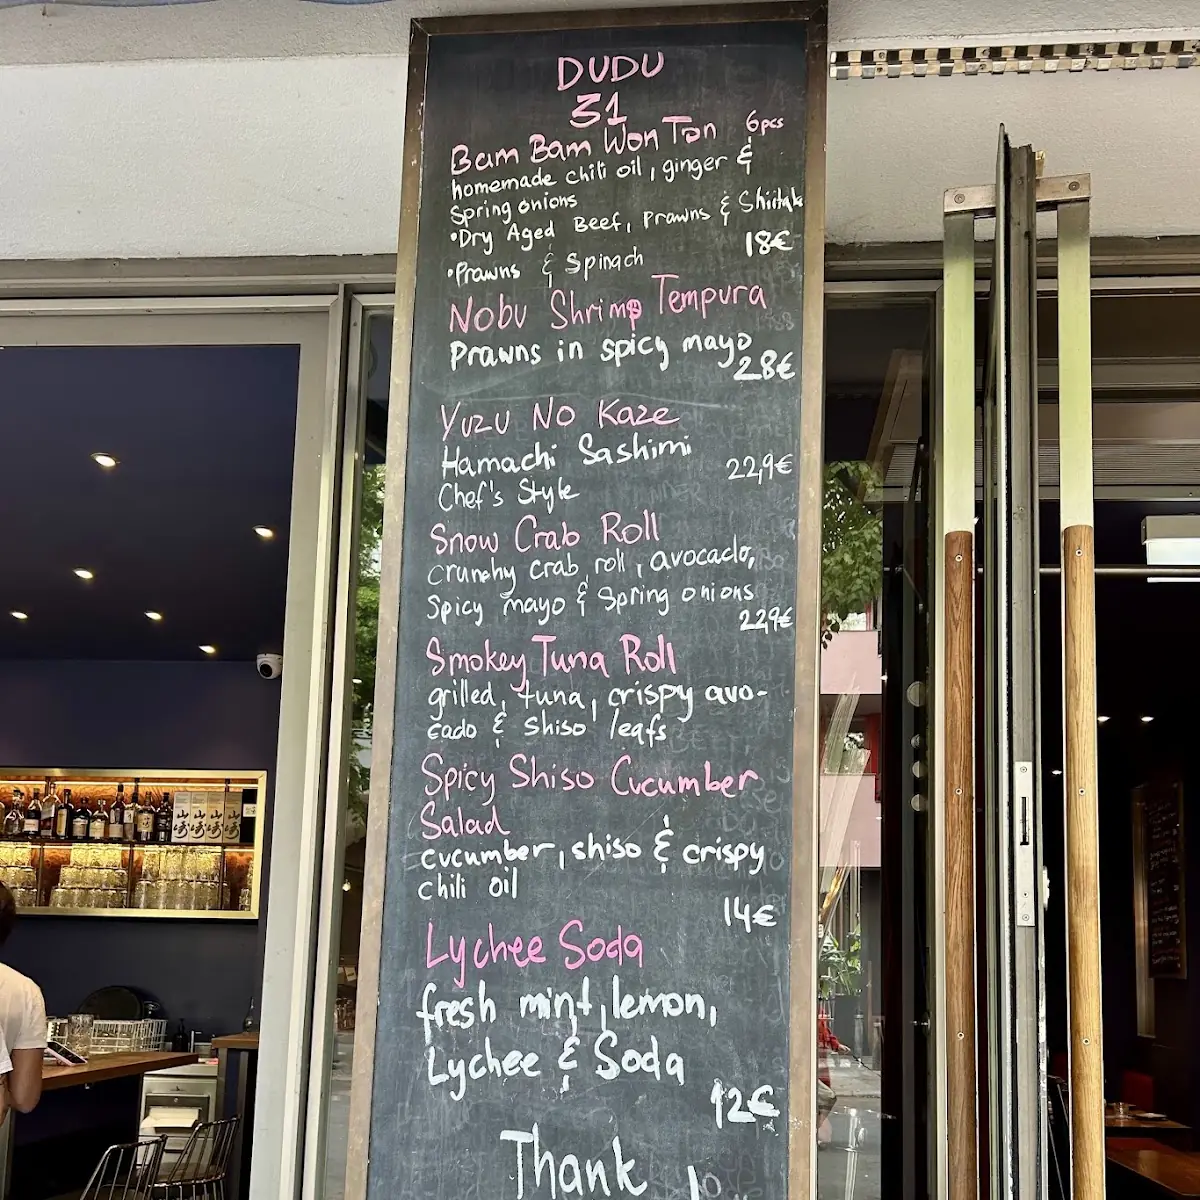 DUDU
31
Bam Bam Won Ton 6pcs
homemade chili oil, ginger &
Spring onions
•Dry Aged Beef, Prawns & Shiitake
18€
•Prawns & Spinach
Nobu Shrimp Tempura
Prawns in spicy mayo
28€
Yuzu No Kaze
Hamachi Sashimi
22,9€
Chef's Style
Snow Crab Roll
crunchy crab roll, avocado,
Spicy mayo & Spring onions
22,9€
Smokey Tuna Roll
grilled, tuna, crispy avo-
cado & Shiso leafs
Spicy Shiso Cucumber
Salad
cucumber, shiso & crispy
chili oil
14€
Lychee Soda
fresh mint, lemon,
Lychee & Soda
12€
Thank